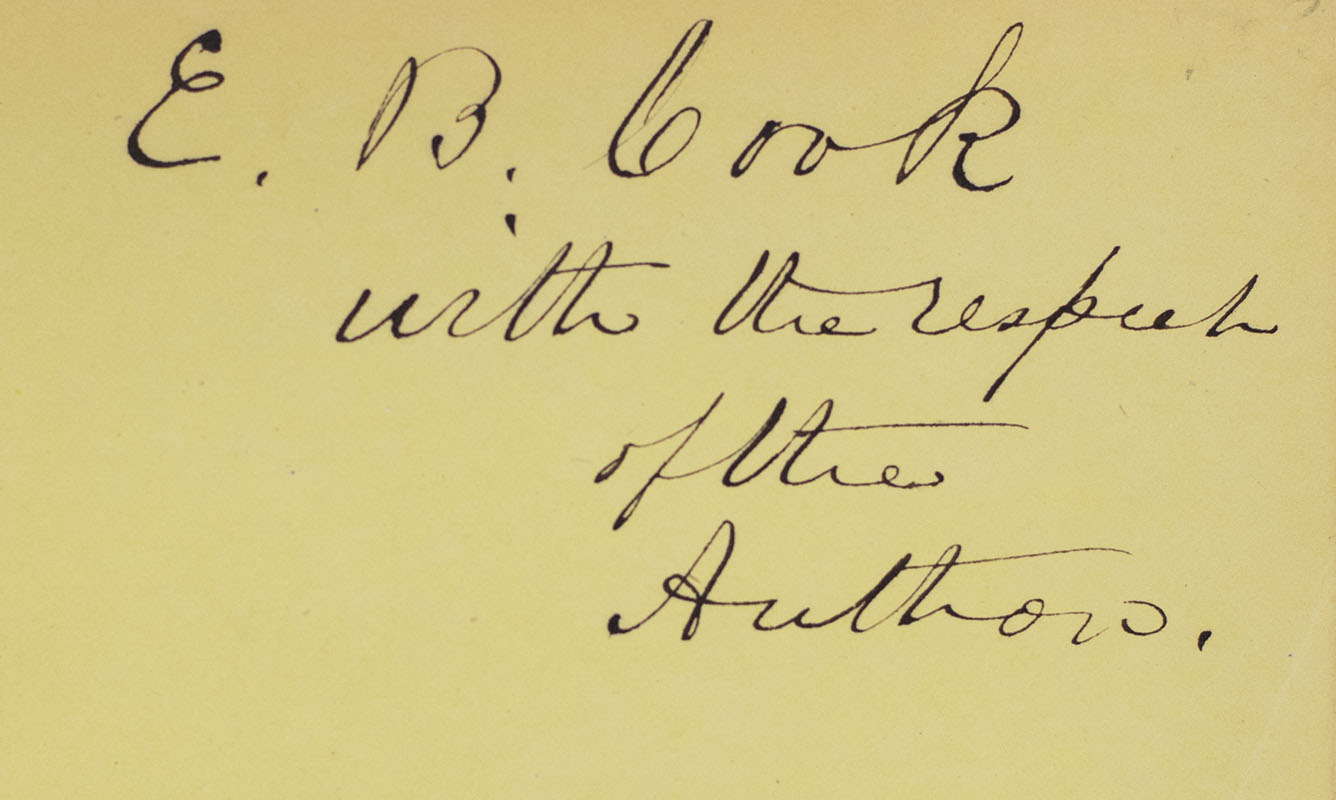 E. B. Cook
with the respects
of the
Author.